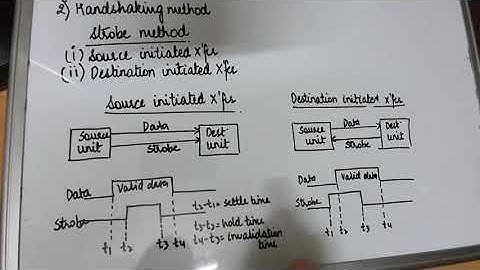 2) Handshaking method
Strobe method
(i) Source initiated x'fer
(ii) Destination initiated x'fer
Source initiated x'fer
Source unit
Data
Strobe
Dest. unit
Data
Valid data
Strobe
t1 t2 t3 t4
t2-t1= settle time
t3-t2= hold time
t4-t3= invalidation time
Destination initiated x'fer
Source unit
Data
Strobe
Dest. unit
Data
Valid data
Strobe
t1 t2 t3 t4